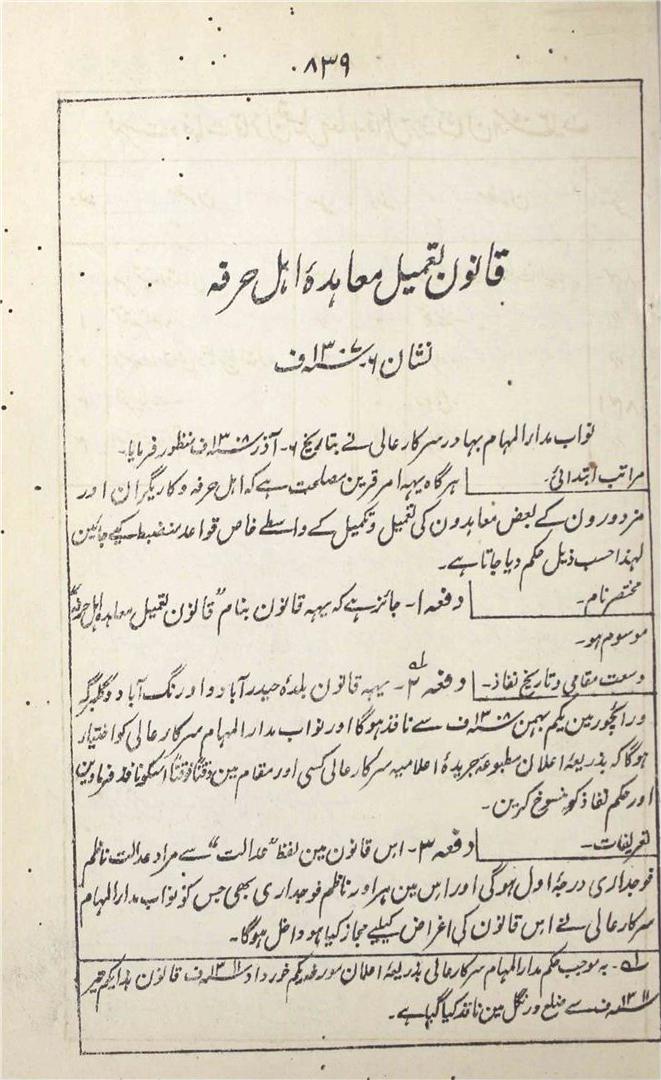 ۸۳۹
قانون تعمیل معاہدۂ اہل حرفہ
نشان ۶ ۱۳۰۷ف
نواب مدارالمہام بہادر سرکارعالی نے بتاریخ ۶۔ آذر ۱۳۰۸ف منظور فرمایا۔
مراتب ابتدائی۔ ہرگاہ یہہ امر قرین مصلحت ہے کہ اہل حرفہ و کاریگران اور
مزدورون کے بعض معاہدون کی تعمیل و تکمیل کے واسطے خاص قواعد منضبط کیے جائین
لہذا حسب ذیل حکم دیا جاتا ہے۔
مختصر نام۔ دفعہ ۱۔ جائز ہے کہ یہہ قانون بنام ”قانون تعمیل معاہدہ اہل حرفہ“
موسوم ہو۔
وسعت مقامی و تاریخ نفاذ۔ دفعہ ۲۔ یہہ قانون بلدۂ حیدرآباد و اورنگ آباد و گلبرگہ
ورائچور مین یکم بہمن ۱۳۰۸ف سے نافذ ہوگا اور نواب مدارالمہام سرکارعالی کو اختیار
ہوگا کہ بذریعۂ اعلان مطبوعہ جریدۂ اعلامیہ سرکارعالی کسی اور مقام مین وقتاً فوقتاً اسکو نافذ فرماوین
اور حکم نفاذ کو منسوخ کرین۔
تعریفات۔ دفعہ ۳۔ اس قانون مین لفظ ”عدالت“ سے مراد عدالت ناظم
فوجداری درجۂ اول ہوگی اور اس مین ہر اور ناظم فوجداری بھی جس کو نواب مدارالمہام
سرکارعالی نے اس قانون کی اغراض کیلیے مجاز کیا ہو داخل ہوگا۔
لہ۔ بموجب حکم مدارالمہام سرکارعالی بذریعۂ اعلان مورخہ یکم خورداد ۱۳۱۱ف قانون ہذا یکم تیر
۱۳۱۱ف سے ضلع ورنگل مین نافذ کیا گیا ہے۔